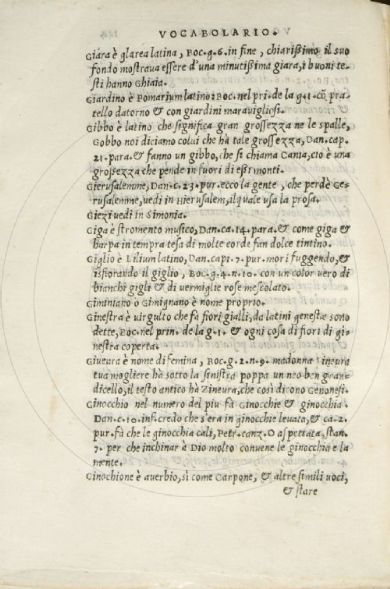 VOCABOLARIO.
Giára è glarea latina, Boc.g.6.in fine, chiarißimo il suo
fondo mostraua essere d'una minutißima giara, i buoni te-
sti hanno Ghiaia.
Giardino è Pomarium latino: Boc. nel pri.de la g.1.cũ pra-
tello datorno & con giardini marauigliosi.
Gibbo è latino che significa gran grossezza ne le spalle,
Gobbo noi diciamo colui che hà tale grossezza, Dan.cap.
21.para.& fanno un gibbo, che si chiama Catria, cio è una
grossezza che pende in fuori di essi monti.
Gierusalemme, Dan.c.23.pur.ecco la gente, che perdè Ge-
rusalemme, uedi in Hierusalem, il quale usa la prosa.
Giezi uedi in Simonia.
Giga è stromento musico, Dan.ca.14.para.& come giga &
harpa in tempra tesa di molte corde fan dolce tintino.
Giglio è Lilium latino, Dan.capi.7.pur.mori fuggendo, &
isfiorando il giglio, Boc.g.4.n.10.con un color uero di
bianchi gigli & di uermiglie rose mescolato.
Gimíniano ò Gimignano è nome proprio.
Ginestra è uirgulto che fà fiori gialli, da latini genestra sono
dette, Boc.nel prin.de la g.1.& ogni cosa di fiori di gi-
nestra coperta.
Gineura è nome di femina, Boc.g.2.n.9.madonna Gineura
tua mogliere hà sotto la sinistra poppa un neo ben gran-
dicello, il testo antico hà Zineura, che cosi dicono Genouesi.
Ginocchio nel numero del piu fà Ginocchie & ginocchia.
Dan.c.10.inf.credo che s'era in ginocchie leuata, & ca.2.
pur.fà che le ginocchia cali, Petr.canz.O aspettata, stan.
7.per che inchinar à Dio molto conuene le ginocchia e la
mente.
Ginochione è auerbio, si come Carpone, & altre simili uoci,
& stare